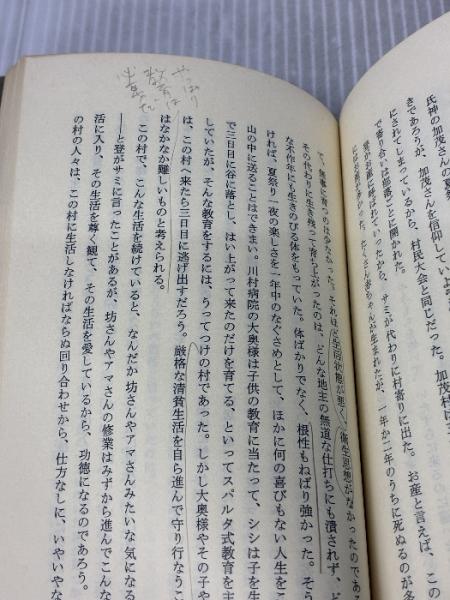 やっぱり
教育は
必要だ
氏神の加茂さんを信仰していよ
きであろうが、加茂さんの夏祭
にされてしまっているから、村民大会と同じだった。加茂村に
で寄り合いは部落ごとに開かれた。
サミが代わりに村寄りに出た。お産と言えば、この
たくさん赤ちゃんが生まれたが、一年か二年のうちに死ぬるのが多
て、無事に育つのは少なかった。それは生活状態が悪く、衛生思想がなかったのであ
その代わりに生き残って育ち上がったのは、どんな地主の無道な仕打ちにも潰されず、ど
な不作年にも生きのびる体をもっていた。体ばかりでなく、根性もねばり強かった。そう
ければ、夏祭り一夜の楽しさを一年中のなぐさめとして、ほかに何の喜びもない人生をこ
山の中に送ることはできまい。川村病院の大奥様は子供の教育に当たって、シシは子を生
で三日目に谷に落とし、はい上がって来たのだけを育てる、といってスパルタ式教育を主
していたが、そんな教育をするには、うってつけの村であった。しかし大奥様やその子や
は、この村へ来たら三日目に逃げ出すだろう。厳格な清貧生活を自ら進んで守り行なうこ
はなかなか難しいものと考えられる。
この村で、こんな生活を続けていると、なんだか坊さんやアマさんみたいな気になる
――と登がサミに言ったことがあるが、坊さんやアマさんの修業はみずから進んでこんな
活に入り、その生活を尊く観て、その生活を愛しているから、功徳になるのであろう。
の村の人々は、この村に生活しなければならぬ回り合わせから、仕方なしに、いやいやな